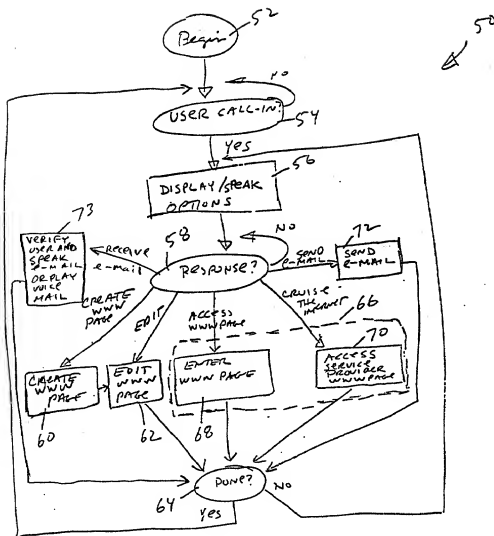 52
50
Begin
NO
USER CALL-IN?
54
Yes
56
DISPLAY/SPEAK
OPTIONS
73
VERIFY
USER AND
SPEAK
e-MAIL
OR PLAY
VOICE
MAIL
RECEIVE
e-mail
58
NO
RESPONSE?
SEND
e-MAIL
72
SEND
e-MAIL
CREATE
WWW
PAGE
EDIT
ACCESS
WWW PAGE
CRUISE
THE
INTERNET
66
CREATE
WWW
PAGE
60
EDIT
WWW
PAGE
62
ENTER
WWW PAGE
68
70
ACCESS
SERVICE
PROVIDER
WWW PAGE
64
DONE?
NO
Yes